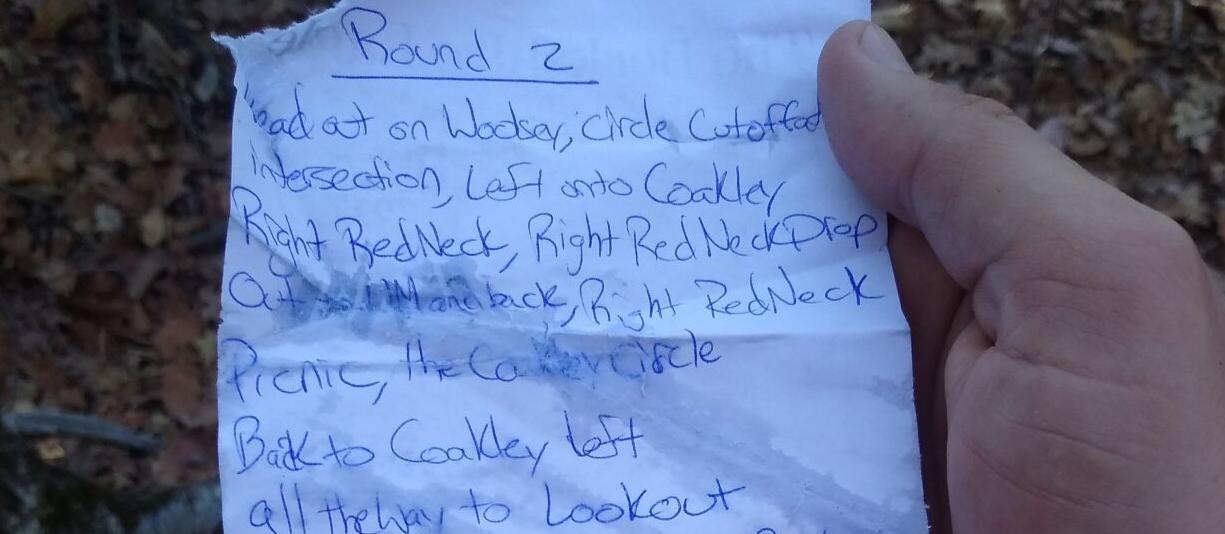 Round 2
out on Woolsey, circle Cutoffed
intersection, Left onto Coakley
Right RedNeck, Right RedNeckDrop
Out and back, Right RedNeck
Picnic, the Circle
Back to Coakley left
all the way to Lookout